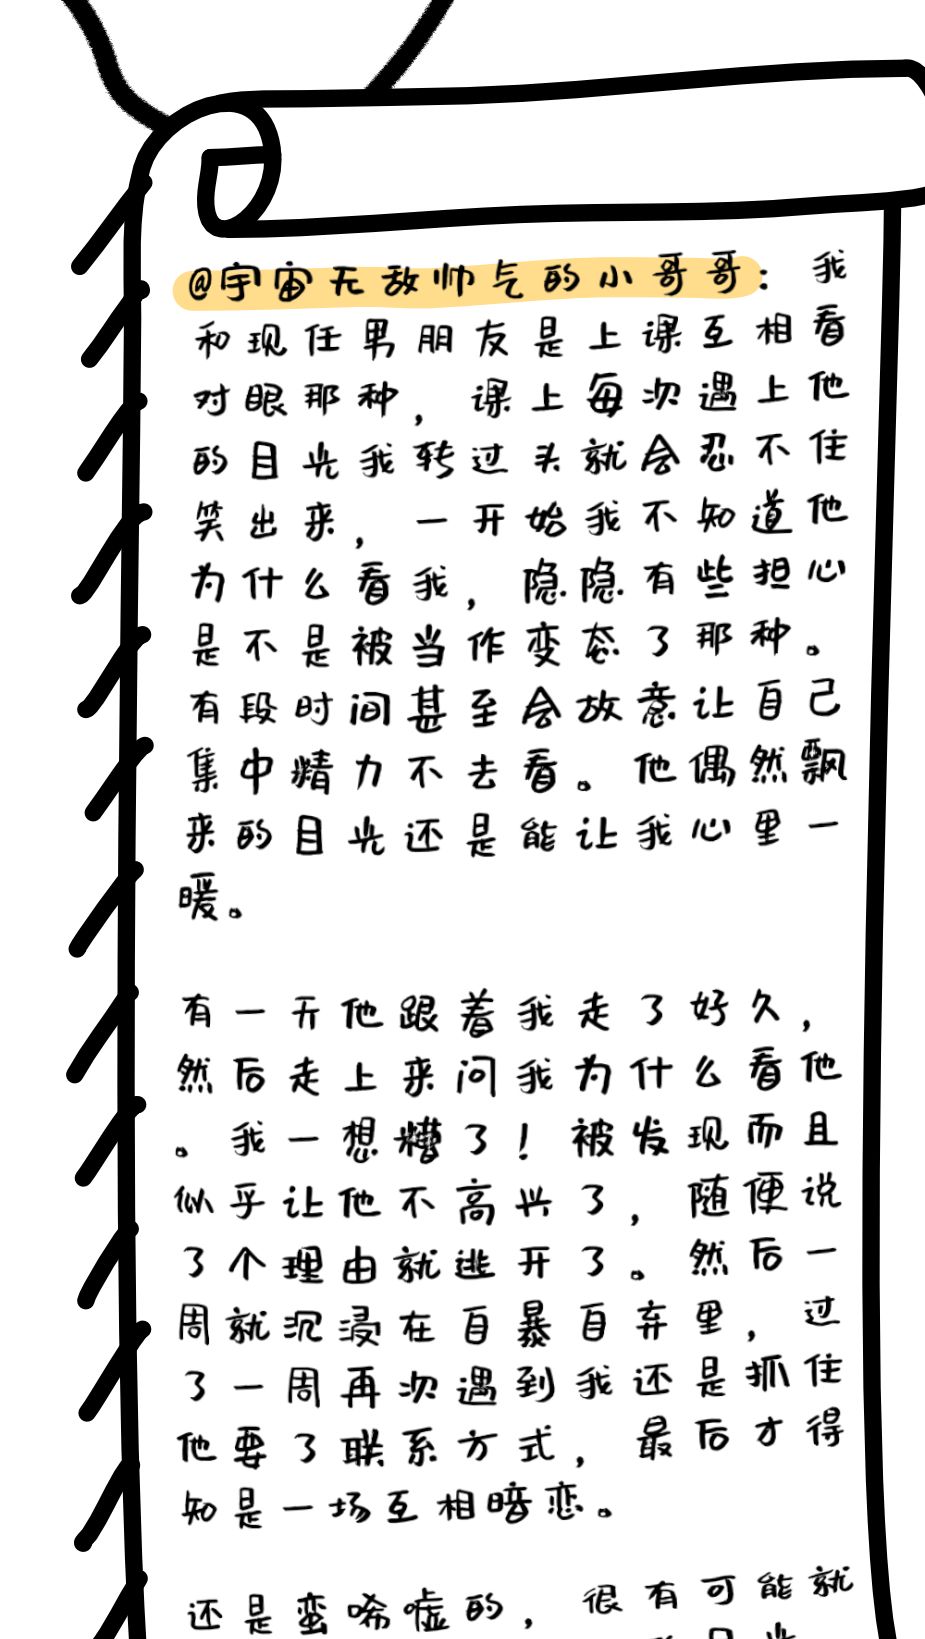 @宇宙无敌帅气的小哥哥：我
和现任男朋友是上课互相看
对眼那种，课上每次遇上他
的目光我转过头就会忍不住
笑出来，一开始我不知道他
为什么看我，隐隐有些担心
是不是被当作变态了那种。
有段时间甚至会故意让自己
集中精力不去看。他偶然飘
来的目光还是能让我心里一
暖。
有一天他跟着我走了好久，
然后走上来问我为什么看他
。我一想糟了！被发现而且
似乎让他不高兴了，随便说
了个理由就逃开了。然后一
周就沉浸在自暴自弃里，过
了一周再次遇到我还是抓住
他要了联系方式，最后才得
知是一场互相暗恋。
还是蛮唏嘘的，很有可能就